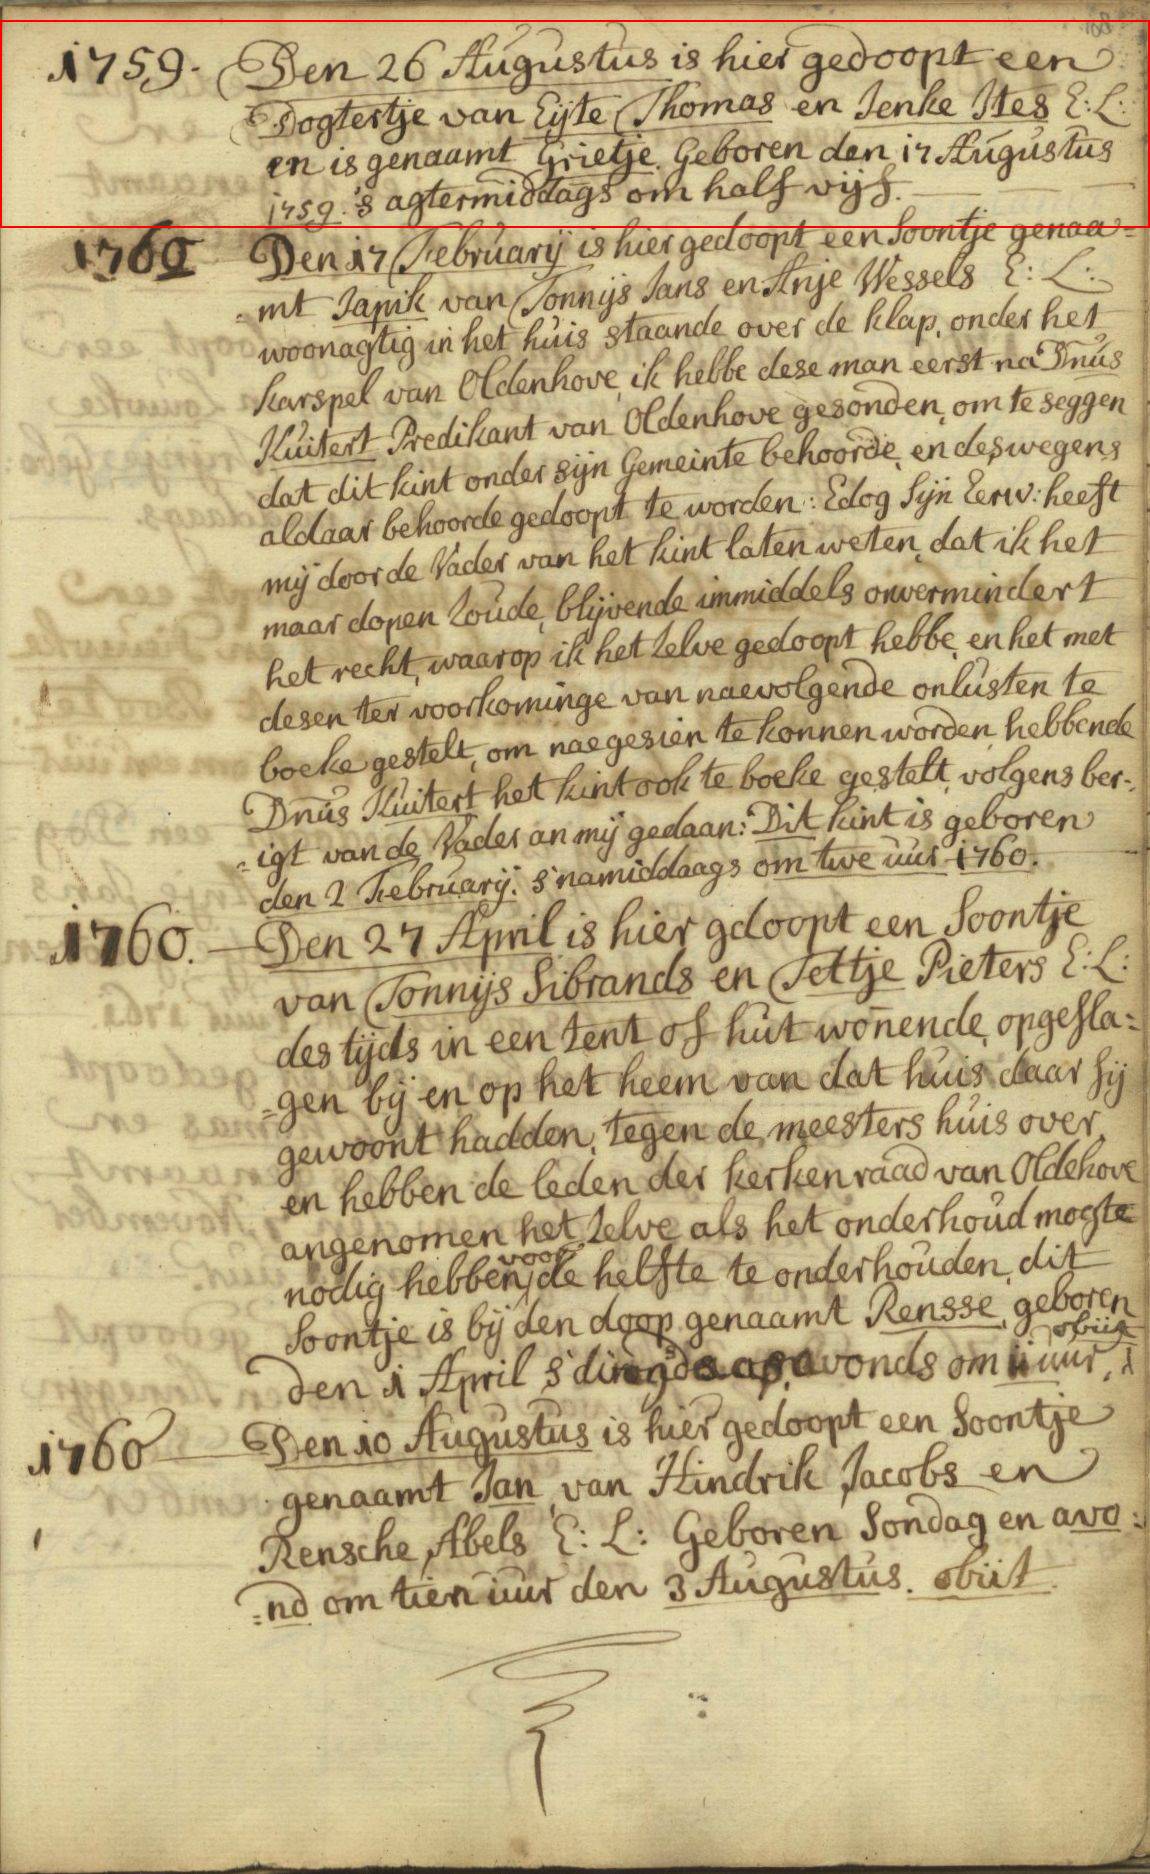 1759. Den 26 Augustus is hier gedoopt een
Dogtertje van Eijte Thomas en Jenke Ites E: L:
en is genaamt Grietje. Geboren den 17 Augustus
1759. 's agtermiddags om half vijf.
1760 Den 17 February is hier gedoopt een Soontje genaa=
=mt Japik van Tonnijs Jans en Anje Wessels E: L:
woonagtig in het huis staande over de klap, onder het
karspel van Oldenhove, ik hebbe dese man eerst na Dnus
Kuitert Predikant van Oldenhove gesonden, om te seggen
dat dit kint onder sijn Gemeinte behoorde, en deswegens
aldaar behoorde gedoopt te worden: Edog Sijn Eerw: heeft
mij door de Vader van het kint laten weten, dat ik het
maar dopen Zoude, blijvende immiddels onvermindert
het recht, waarop ik het Zelve gedoopt hebbe, en het met
desen ter voorkominge van naevolgende onlusten te
boeke gestelt, om naegesien te konnen worden, hebbende
Dnus Kuitert het kint ook te boeke gestelt, volgens ber=
=igt van de Vader an mij gedaan: Dit kint is geboren
den 2 February. s'namiddaags om twe uur 1760.
1760. Den 27 April is hier gdoopt een Soontje
van Tonnijs Sibrands en Tettje Pieters E: L:
des tijds in een tent of hut wonende, opgesla=
=gen bij en op het heem van dat huis daar sij
gewoont hadden, tegen de meesters huis over,
en hebben de leden der kerkenraad van Oldehove
angenomen het Zelve als het onderhoud mogte
nodig hebben, voor de helfte te onderhouden, dit
Soontje is bij den doop genaamt Rensse, geboren
obiit
den 1 April s' avonds om ii uur,
1760 Den 10 Augustus is hier gedoopt een Soontje
genaamt Jan, van Hindrik Jacobs en
Rensche Abels E: L: Geboren Sondag en avo=
=nd om tien uur den 3 Augustus. obiit.